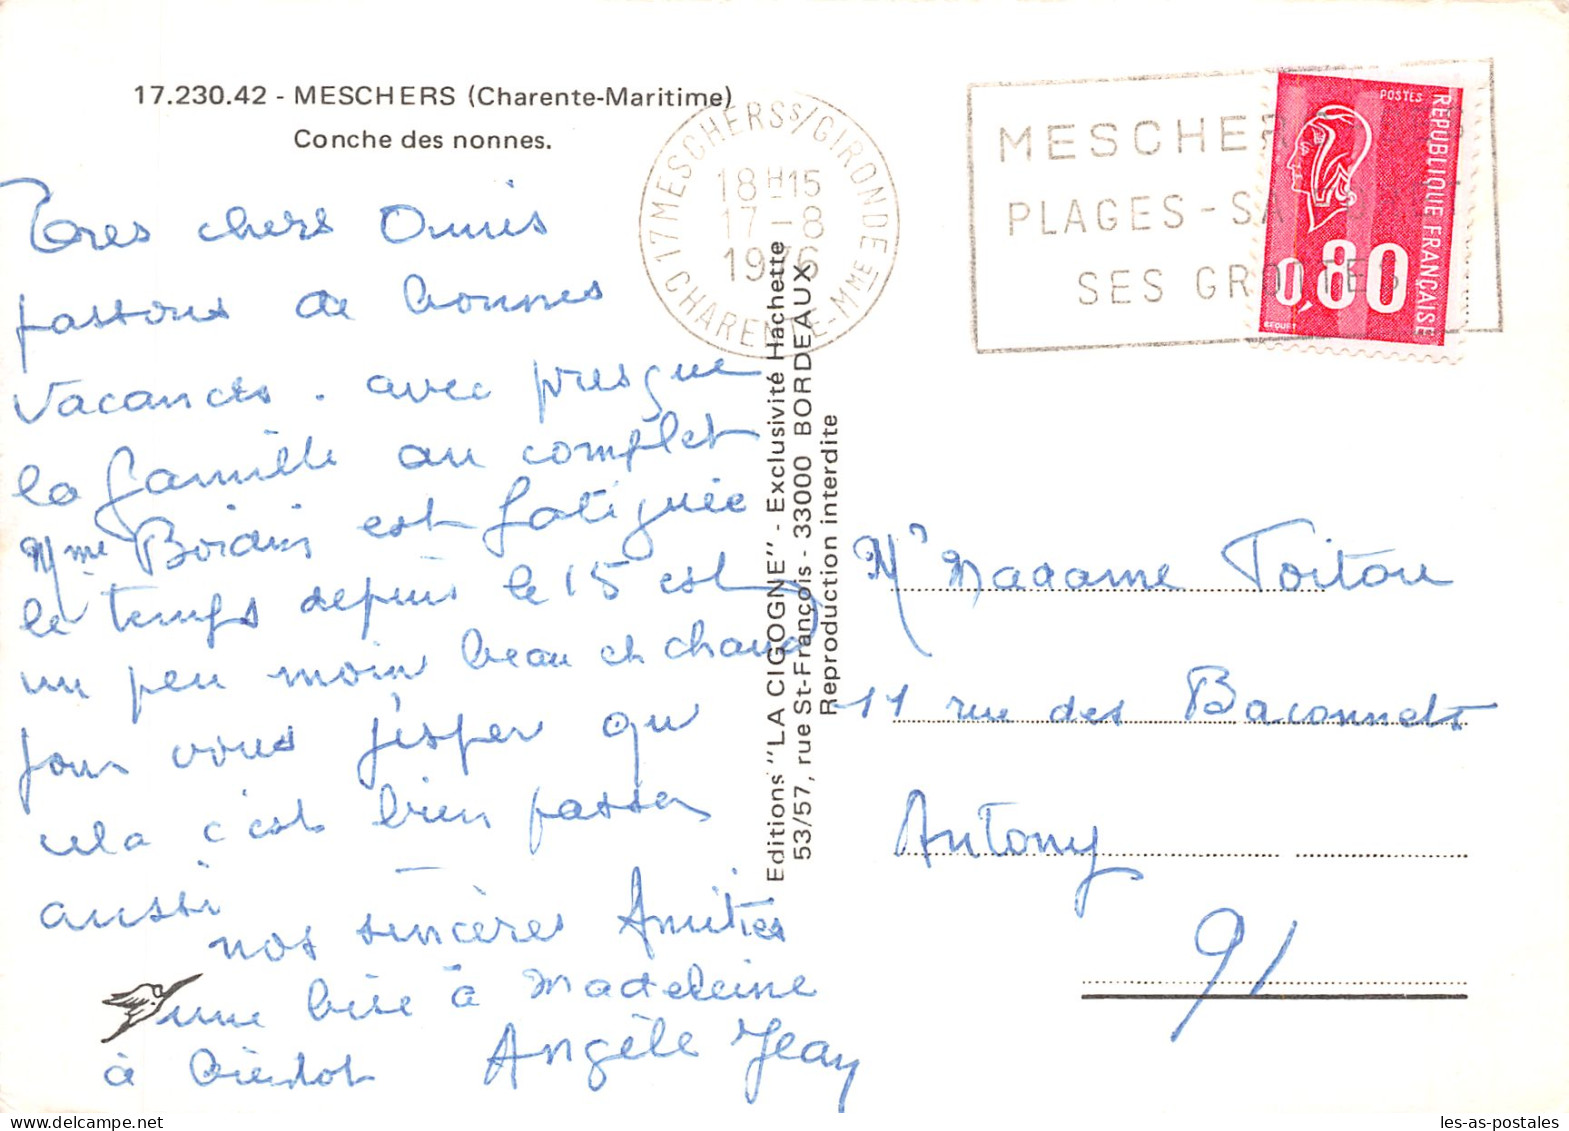 17.230.42 - MESCHERS (Charente-Maritime)
Conche des nonnes.
17 MESCHERS S/GIRONDE
18H15
17-8
1976
CHARENTE-MME
MESCHE
PLAGES - SA
SES GROTTES
POSTES
REPUBLIQUE FRANÇAISE
0,80
BEQUET
Tres chers Amis
passons de bonnes
vacances. avec presque
la famille au complet
Mme Boidin est fatiguée
le temps depuis le 15 est
un peu moin beau et chaud
pour vous j'esper qu
cela c'est bien passer
aussi
nos sincères Amitiés
une bise à Madeleine
à bientot Angèle Jean
Editions "LA CIGOGNE" - Exclusivité Hachette
53/57, rue St-François - 33000 BORDEAUX
Reproduction interdite
Mr Madame Poitou
11 rue des Baconnets
Antony
91
les-as-postales